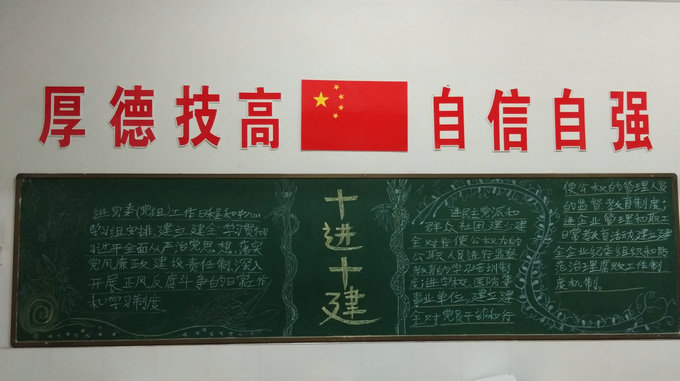 厚德技高 自信自强
进党委(党组)工作日程和中心
学习组安排,建立健全学习贯彻
习近平全面从严治党思想,落实
党风廉政建设责任制,深入
开展正风反腐斗争的日常工作
和学习制度
十进十建
进民主党派和
群众社团,建立健
全对行使公权力的
公职人员进行监督
教育的学习培训制
度;进学校、医院等
事业单位,建立健
全对党员干部和行
使公权的管理人员
的监督教育制度;
进企业管理和职工
日常教育活动,建立健
全企业纪委组织和防
范治理腐败工作制
度机制。